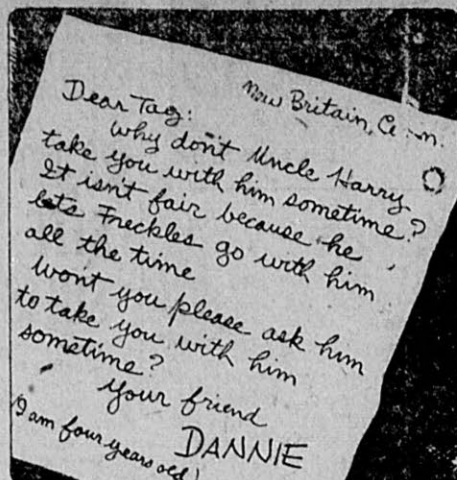 New Britain, Conn.
Dear Tag:
Why don't Uncle Harry
take you with him sometime?
It isn't fair because he
lets Freckles go with him
all the time
Won't you please ask him
to take you with him
sometime?
Your friend
DANNIE
(I am four years old)